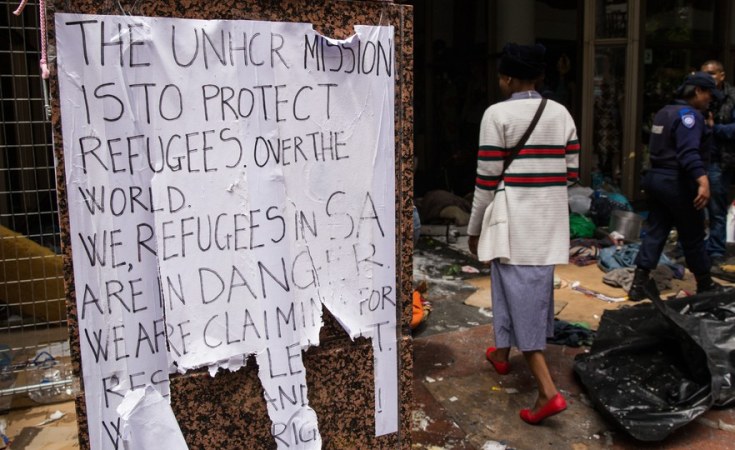 THE UNHCR MISSION
IS TO PROTECT
REFUGEES. OVER THE
WORLD.
WE, REFUGEES IN SA
ARE IN DANGER.
WE ARE CLAIMIN FOR